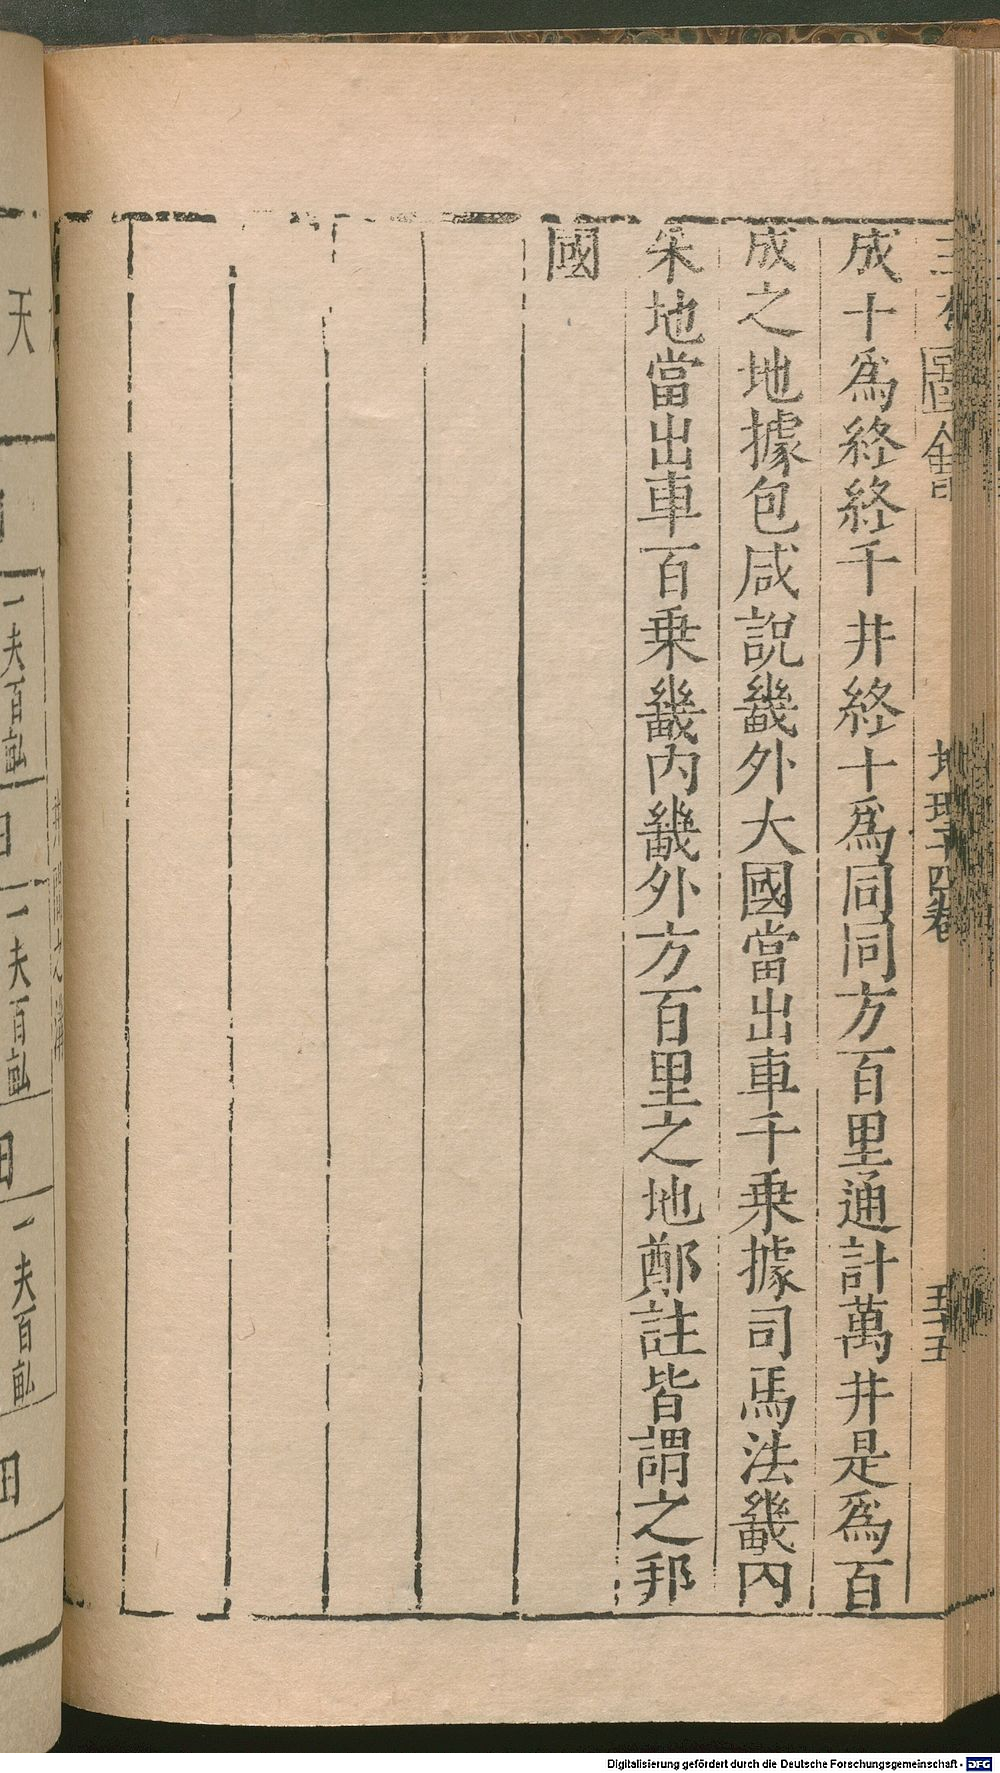 三才圖會 地理十四卷 五十五
成十爲終終千井終十爲同同方百里通計萬井是爲百
成之地據包咸說畿外大國當出車千乗據司馬法畿內
采地當出車百乗畿內畿外方百里之地鄭註皆謂之邦
國
天
一夫百畝
一夫百畝
一夫百畝
Digitalisierung gefördert durch die Deutsche Forschungsgemeinschaft - DFG